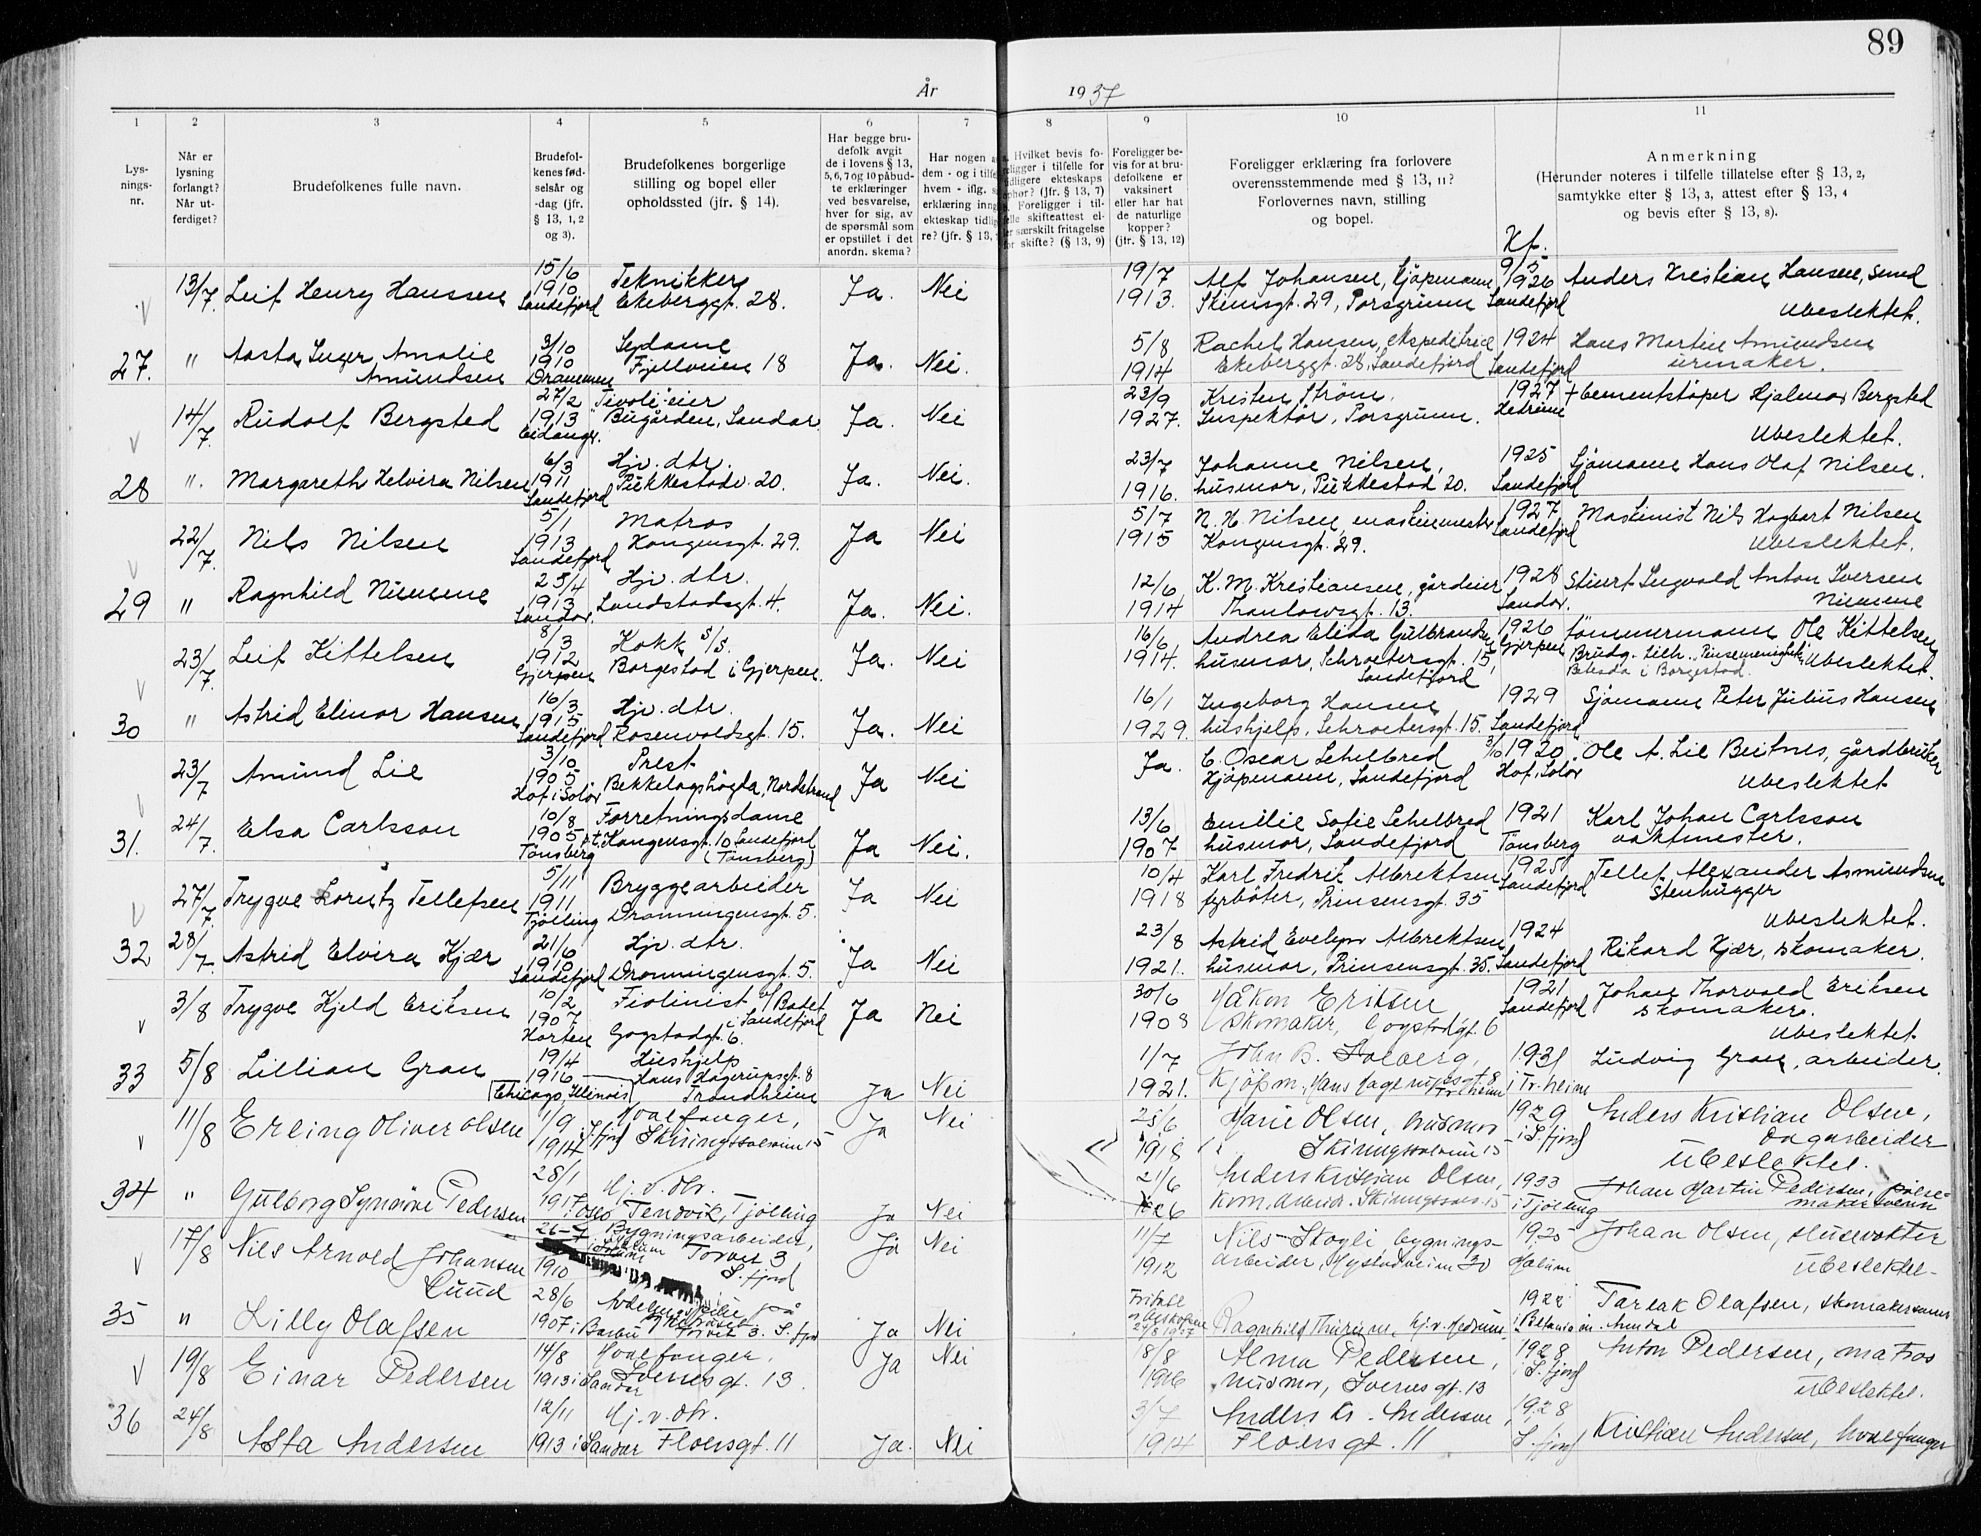 89
År 1937
1 2 3 4 5 6 7 8 9 10 11
Lysningsnr.
Når er lysning forlangt? Når utferdiget?
Brudefolkenes fulle navn.
Brudefolkenes fødselsår og -dag (jfr. § 13, 1, 2 og 3).
Brudefolkenes borgerlige stilling og bopel eller opholdssted (jfr. § 14).
Har begge brudefolk avgit de i lovens § 13, 5, 6, 7 og 10 påbudte erklæringer ved besvarelse, hver for sig, av de spørsmål som er opstillet i det anordn. skema?
Foreligger bevis for at brudefolkene er vaksinert eller har hat de naturlige kopper? (jfr. § 13, 12)
Foreligger erklæring fra forlovere overensstemmende med § 13, 11? Forlovernes navn, stilling og bopel.
Anmerkning
(Herunder noteres i tilfelle tillatelse efter § 13, 2, samtykke efter § 13, 3, attest efter § 13, 4 og bevis efter § 13, 8).
Kf.
13/7 Leif Henry Hanssen 15/6 1910 Sandefjord Tekniker Ekeberggt. 28. Ja. Nei 19/7 1913. Alf Johansen, kjøpmann Skiensgt. 29, Porsgrunn 9/5 1926 Sandefjord Anders Kristian Hansen, smed Ubeslektet.
27. " Aasta Inger Amalie Amundsen 3/10 1910 Drammen Sydame Fjellveien 18 Ja. Nei. 5/8 1914 Rachel Hansen, ekspeditrice Ekeberggt. 28, Sandefjord 1924 Sandefjord Hans Martin Amundsen urmaker.
14/7. Rudolf Bergsted 27/2 1913 Eidanger. Tivoli-eier Bugården, Sandar. Ja. Nei 23/9 1927. Kristen Strøm, Inspektør, Porsgrunn. 1927 + Cementstøper Hjalmar Bergsted Ubeslektet.
28 ". Margareth Helvira Nilsen 6/3 1911 Sandefjord Hjv. dtr. Pukkestadv. 20. Ja. Nei. 23/7 1916. Johanne Nilsen, husmor, Pukkestad 20. 1925 Sandefjord Sjømann Hans Olaf Nilsen.
22/7. Nils Nilsen 5/1 1913 Sandefjord Matros Kongensgt. 29. Ja Nei 5/7 1915 N. H. Nilsen, maskinmester Kongensgt. 29. 1927 Sandefjord Maskinist Nils Hagbart Nilsen Ubeslektet.
29 " Ragnhild Niemene 25/4 1913 Sandar. Hjv. dtr. Landstadsgt. 4. Ja. Nei. 12/6 1914 K. M. Kristiansen, gårdeier Thaulowsgt. 13. 1928 Sandar. Stuert Ingvald Anton Iversen Niemene
23/7. Leif Kittelsen 8/3 1912 Gjerpen Kokk S/S. Borgestad i Gjerpen. Ja. Nei 16/6 1914. Andrea Elida Gulbrandsen husmor, Schroetersgt. 15, Sandefjord 1926 Gjerpen Tømmermann Ole Kittelsen Brudg. tilh. Pinsemenighet Betesda i Borgestad. Ubeslektet.
30 " Astrid Elinor Hansen 16/3 1915 Sandefjord Hjv. dtr. Rosenvoldsgt. 15. Ja. Nei 16/1 1929. Ingeborg Hansen hushjelp, Schroetersgt. 15 1929 Sandefjord Sjømann Peter Julius Hansen
23/7 Amund Lie 3/10 1905 Hof i Solør Prest Bekkelagshøgda, Nordstrand Ja Nei Ja. C. Oscar Schelbred Kjøpmann, Sandefjord 3/10 1920 Hof, Solør Ole A. Lie Beitnes, gårdbruker Ubeslektet
31. 24/7. Elsa Carlsson 10/8 1905 Tønsberg Forretningsdame p.t. Kongensgt. 10 Sandefjord (Tønsberg) Ja Nei. 13/6 1907 Emilie Sofie Schelbred husmor, Sandefjord 1921 Tønsberg Karl Johan Carlsson vaktmester.
27/7. Trygve Lorentz Tellefsen 5/11 1911 Tjølling Bryggearbeider Dronningensgt. 5. Ja Nei 10/4 1918 Karl Fredrik Albrektsen fyrbøter, Prinsensgt. 35 1925 Sandefjord Tellef Alexander Asmundsen Stenhugger Ubeslektet.
32 28/7. Astrid Elvira Kjær 21/6 1910 Sandefjord Hjv. dtr. Dronningensgt. 5. Ja Nei 23/8 1921. Astrid Evelyn Albrektsen husmor, Prinsensgt. 35. 1924 Sandefjord Rikard Kjær, skomaker.
3/8 Trygve Kjeld Eriksen 10/2 1907 Horten Fiolinist v/ Badet i Sandefjord Gogstadgt. 6. Ja Nei 30/6 1908 Håkon Eriksen skomaker, Gogstadgt. 6 1921 Sandefjord Johan Thorvald Eriksen skomaker. Ubeslektet.
33 5/8 Lillian Gran 19/4 1916 Chicago, Illinois Hushjelp Hans Hagerupsgt. 8 Trondheim Ja Nei 1/7 1921. John B. Solberg, Kjøpm., Hans Hagerupsgt. 8 Tr.heim 1931 i Tr.heim Ludvig Gran, arbeider.
11/8 Erling Oliver Olsen 1/9 1914 S.fjord Hvalfanger, Skiringssalveien 15 Ja Nei 25/6 1918 Marie Olsen, husmor Skiringssalveien 15 1929 i S.fjord Anders Kristian Olsen, Dagarbeider Ubeslektet.
34 " Gulborg Synnøve Pedersen 28/1 1917 Oslo Hj.v. dtr. Tenvik, Tjølling Ja Nei 21/6 Anders Kristian Olsen, Kom. Arbeid. Skiringssalv. 15 1933 i Tjølling Johan Martin Pedersen, pølsemaker
17/8 Nils Arnold Johansen Lund 26-7 1910 Bygningsarbeider, Torvet 3 S.fjord Ja Nei 11/7 1912 Nils Skogli bygningsarbeider, Mystadveien 30 1925 Johan Olsen, slusevokter Ubeslektet
35 " Lilly Olafsen 28/6 1907 i Barbu Torvet 3. S.fjor Ja Nei Fritatt av biskopen Ragnhild Thurum, hj.v. 1922 Tarlak Olafsen, skomakersvenn Arendal
19/8 Einar Pedersen 14/8 1913 i Sandar Hvalfanger, Sverresgt. 13 Ja Nei 8/8 1916 Alma Pedersen, husmor, Sverresgt. 13 1928 i S.fjord Anton Pedersen, matros ubeslektet.
36 24/8 Asta Andersen 12/11 1913 i Sandar Hj.v. dtr. Floersgt. 11 Ja. Nei 3/7 1914 Anders Kr. Andersen, Floersgt. 11 1928 S.fjord Kristian Andersen, hvalfanger